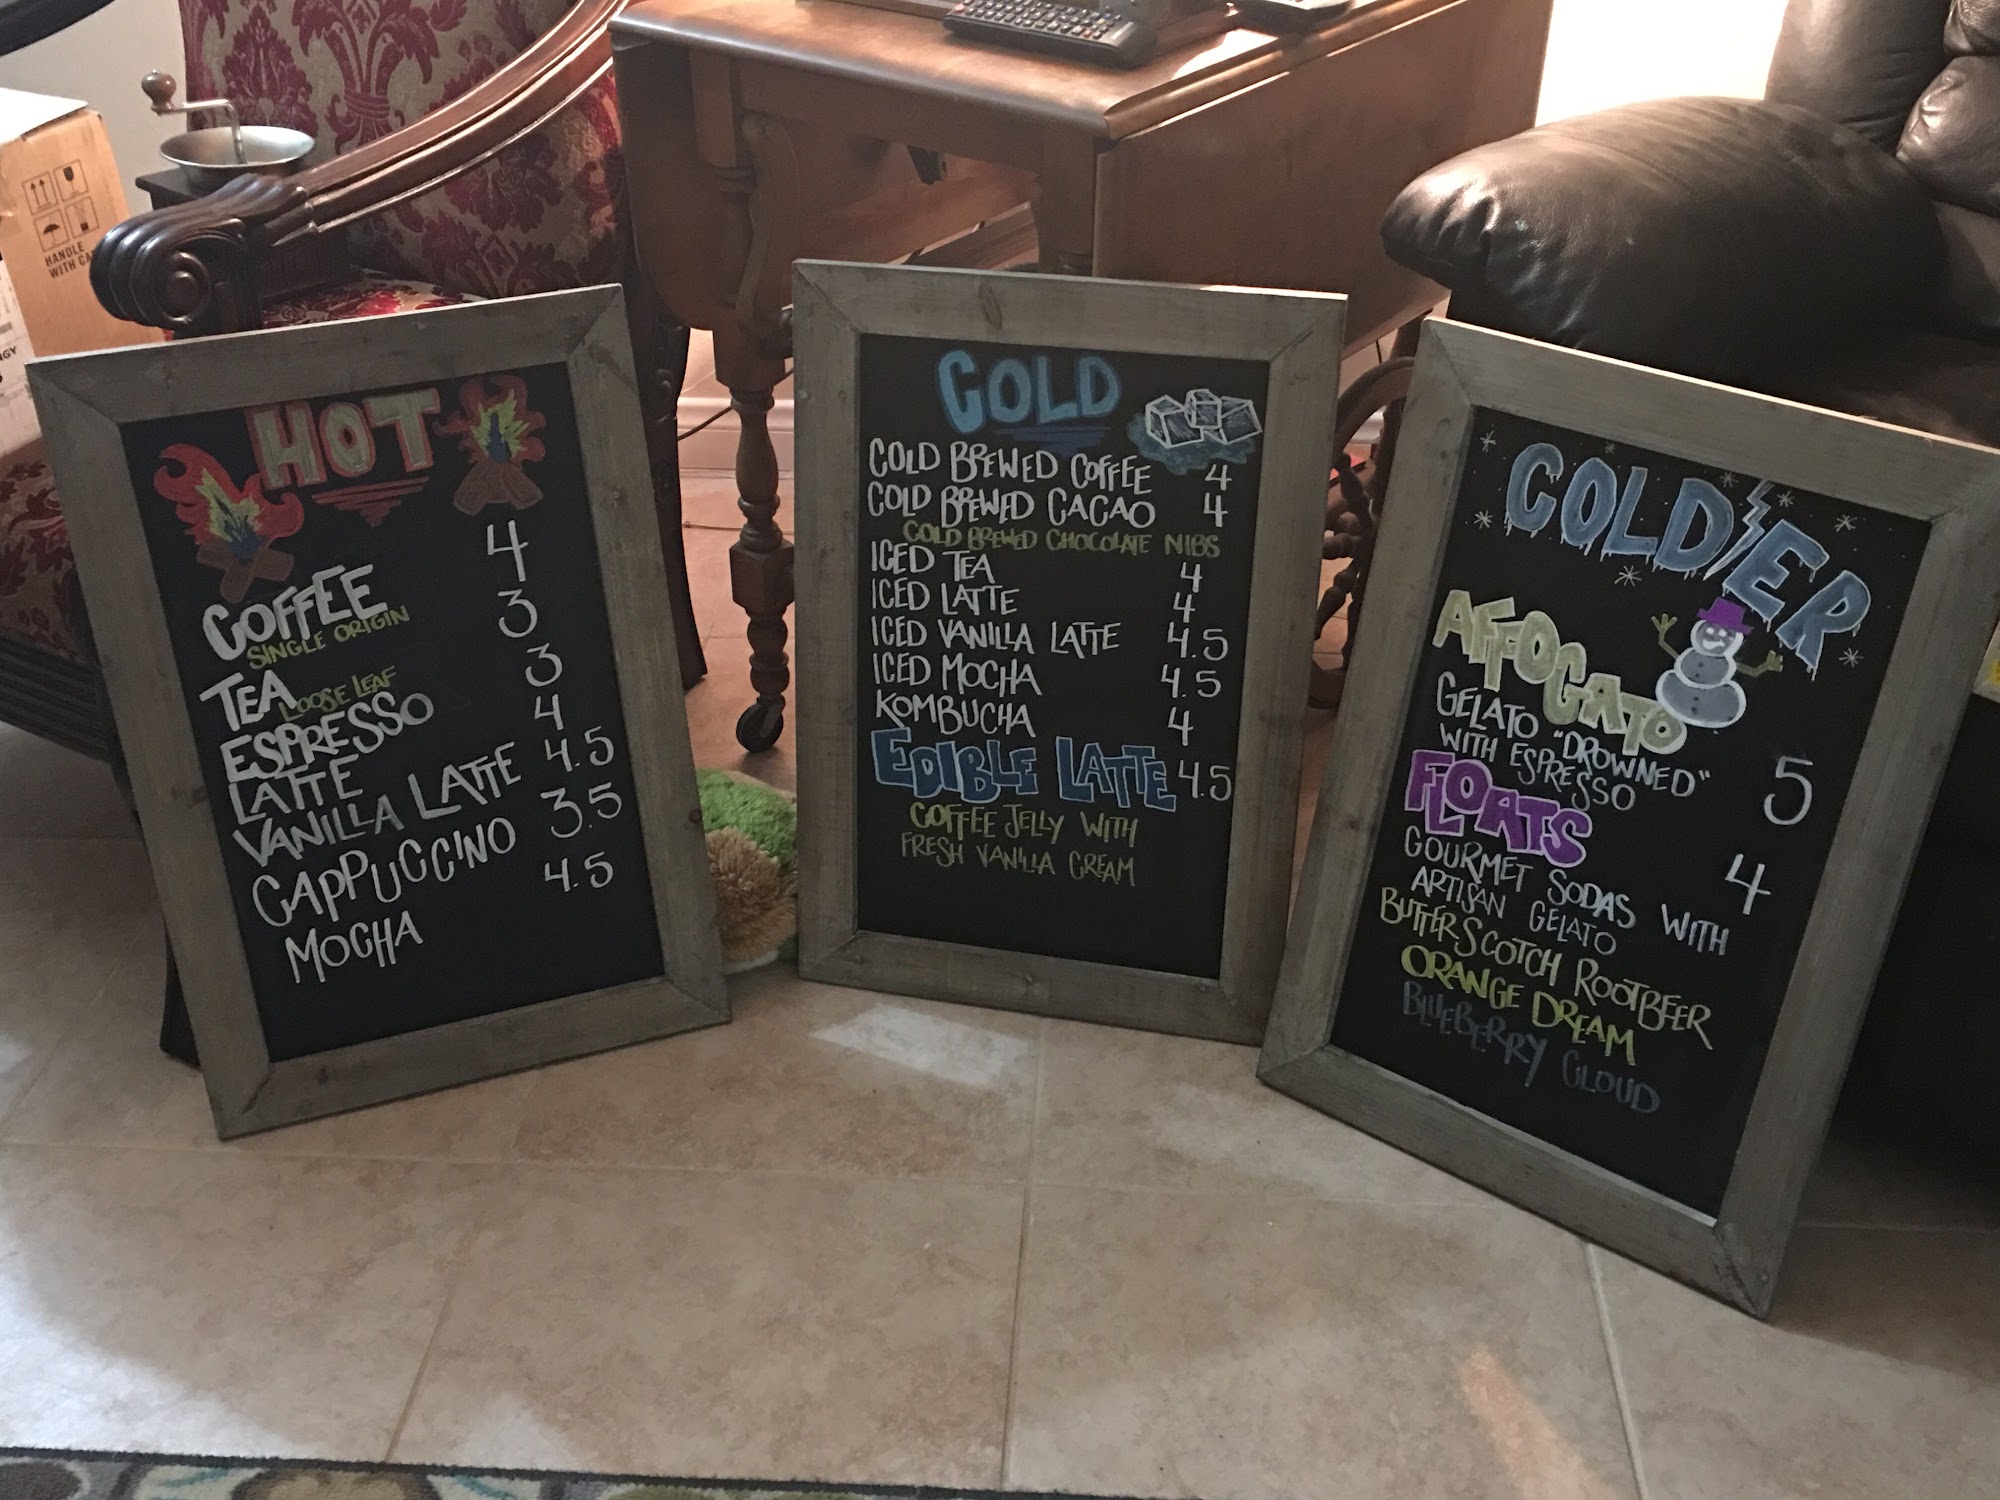 HANDLE
WITH CA
GY
HOT
COFFEE 4
SINGLE ORIGIN
TEA 3
LOOSE LEAF
ESPRESSO 3
LATTE 4
VANILLA LATTE 4.5
CAPPUCCINO 3.5
MOCHA 4.5
COLD
COLD BREWED COFFEE 4
COLD BREWED CACAO 4
COLD BREWED CHOCOLATE NIBS
ICED TEA 4
ICED LATTE 4
ICED VANILLA LATTE 4.5
ICED MOCHA 4.5
KOMBUCHA 4
EDIBLE LATTE 4.5
COFFEE JELLY WITH
FRESH VANILLA CREAM
COLD'ER
AFFOGATO
GELATO "DROWNED"
WITH ESPRESSO 5
FLOATS 4
GOURMET SODAS WITH
ARTISAN GELATO
BUTTERSCOTCH ROOTBEER
ORANGE DREAM
BLUEBERRY CLOUD